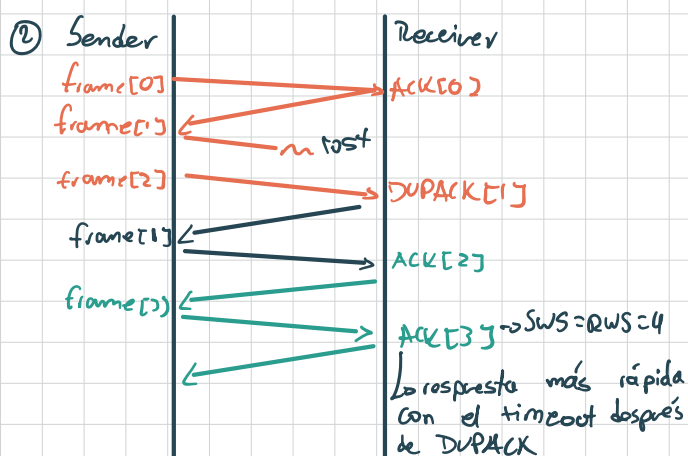 2 Sender Receiver
frame[0] ACK[0]
frame[1] lost
frame[2] DUPACK[1]
frame[1] ACK[2]
frame[3) ACK[3] → SWS = RWS = 4
respuesta más rápida
con el timeout después
de DUPACK